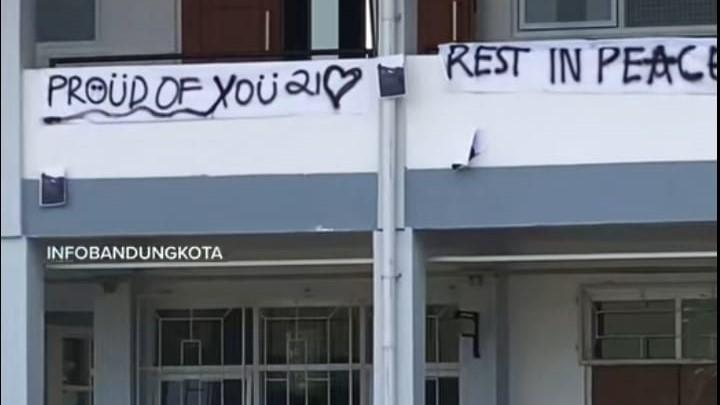 PROÜD OF YOÜ 21♡
REST IN PEACE
INFOBANDUNGKOTA